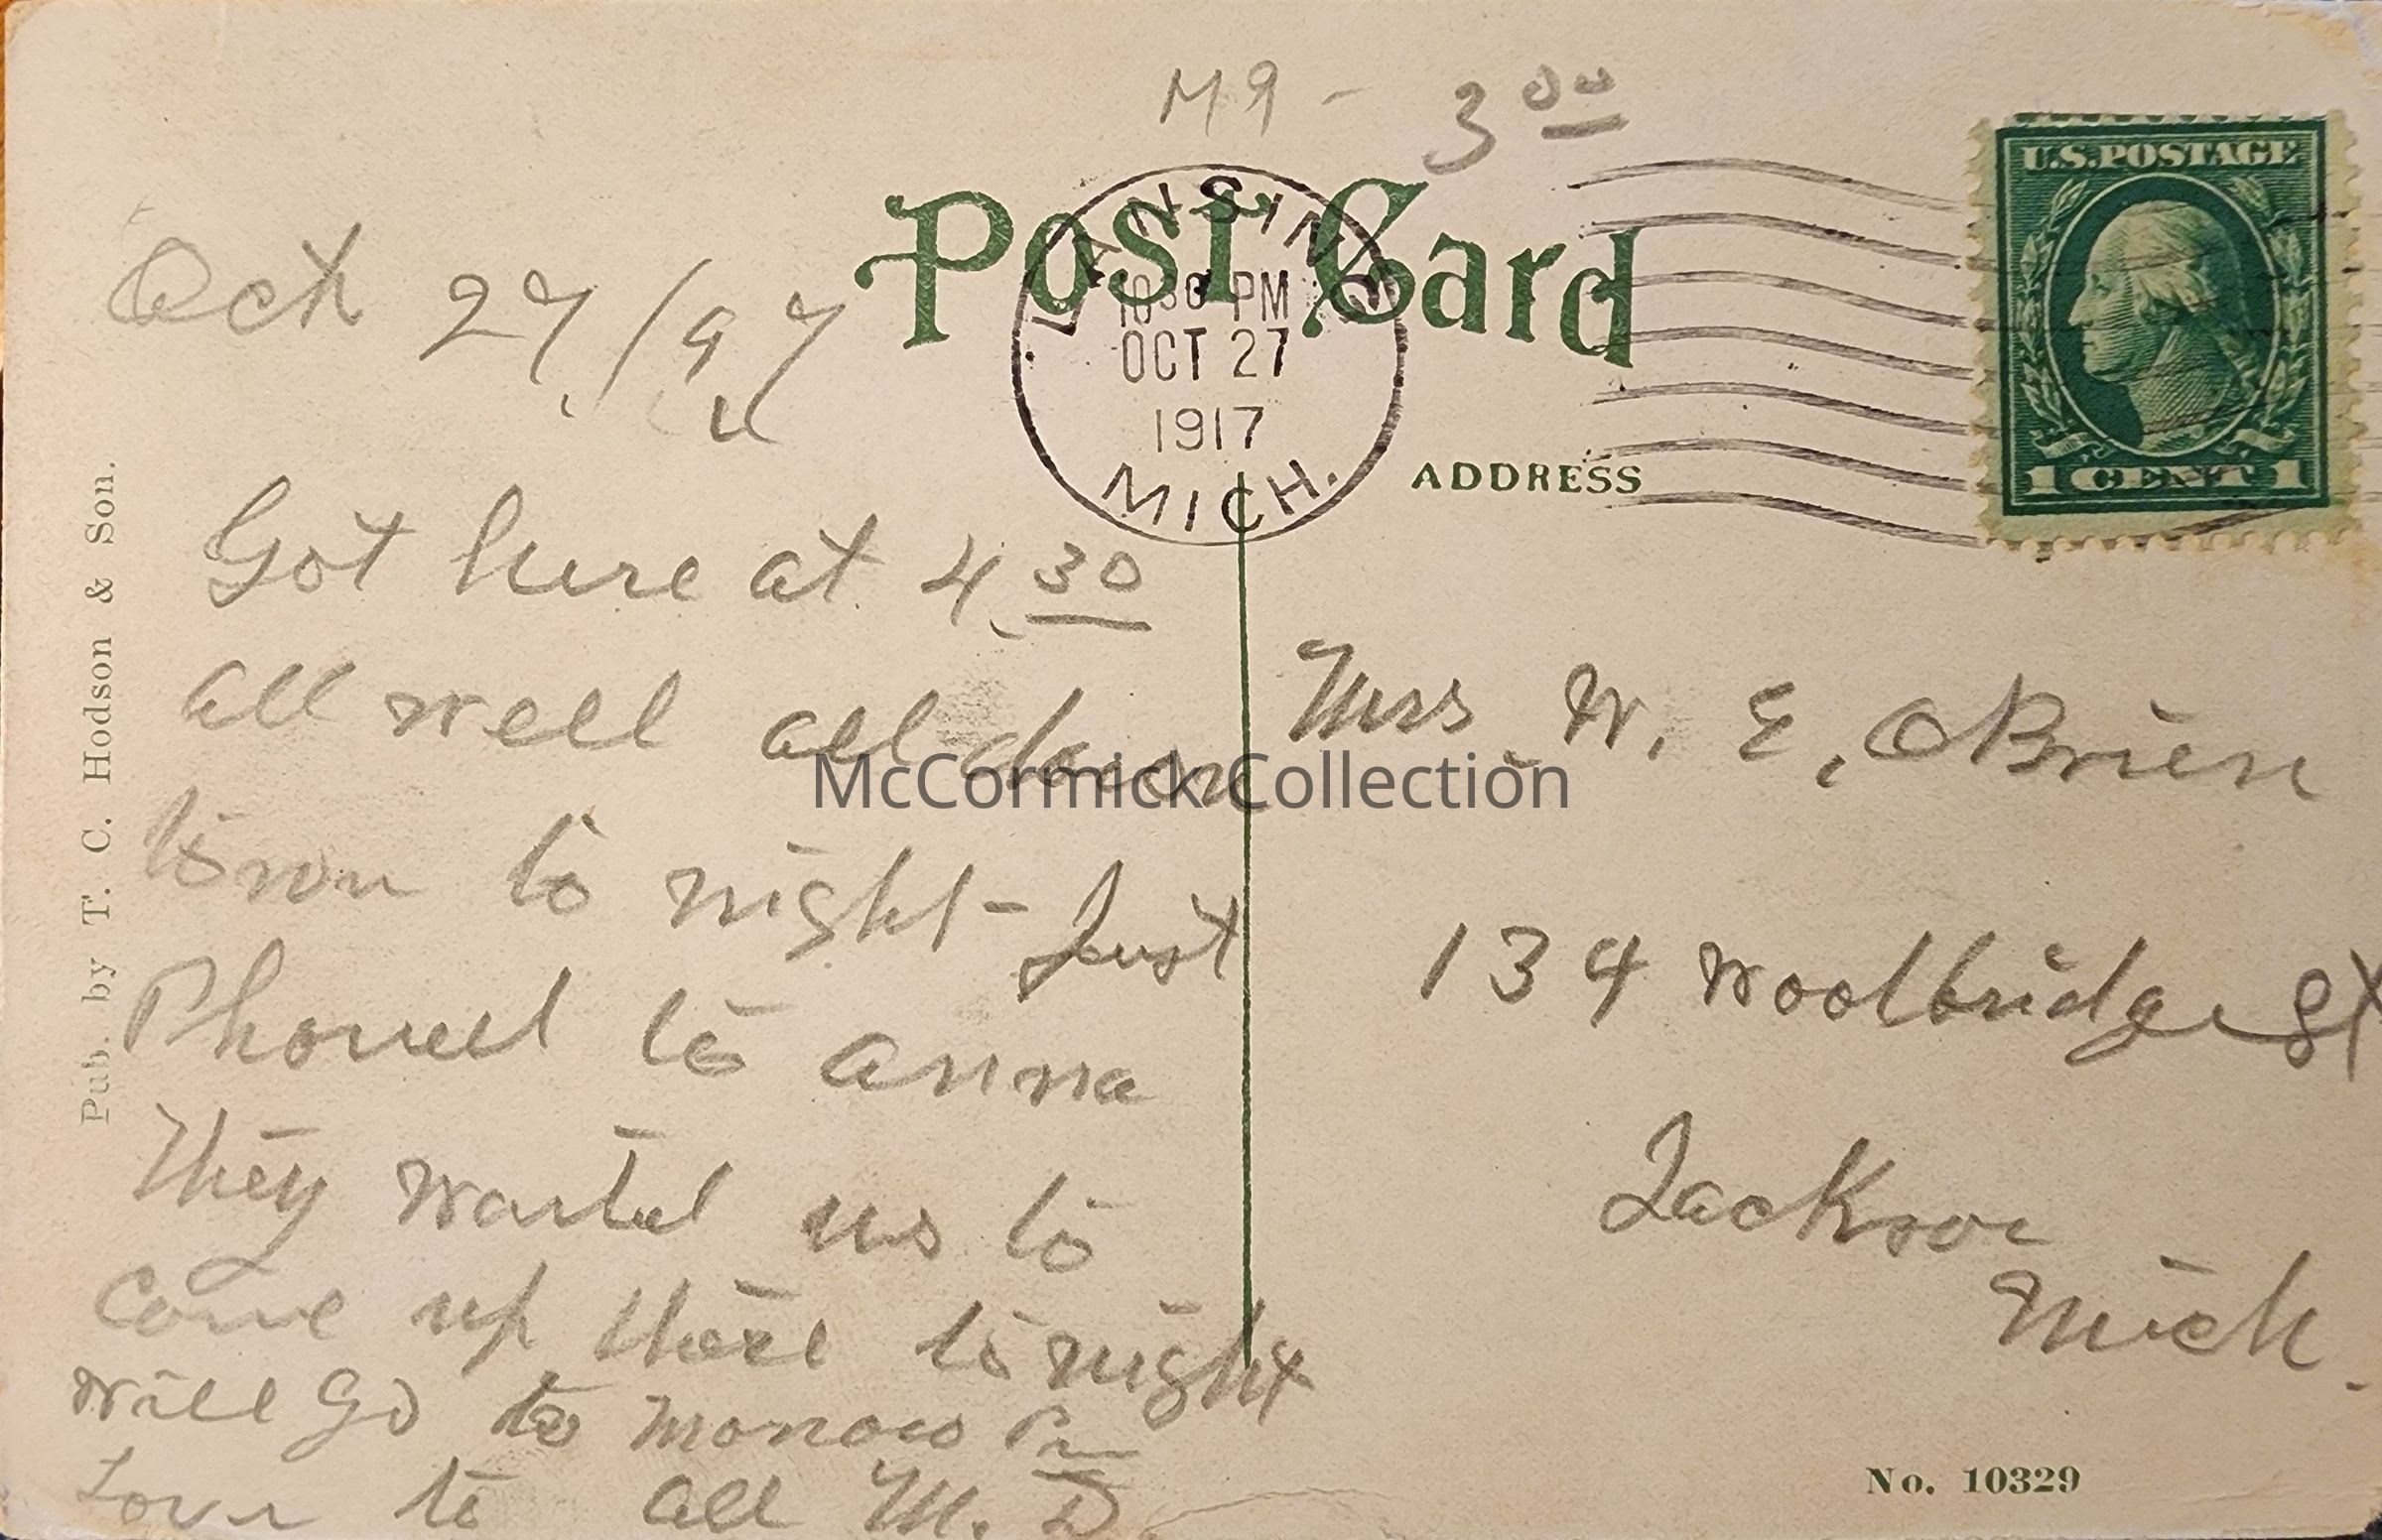 M9 - 3 00
Post Card
LANSING
10 30 PM
OCT 27
1917
MICH.
U.S. POSTAGE
1 CENT 1
ADDRESS
Pub. by T. C. Hodson & Son.
Oct 27/97
Got here at 4.30
all well all down
town to night - Just
Phoned to anna
They wanted us to
come up there to night
will go to morrow Pm
Love to all M. D.
Mrs W. E. OBrien
134 Woolbridge St
Jackson
Mich.
No. 10329
McCormick Collection